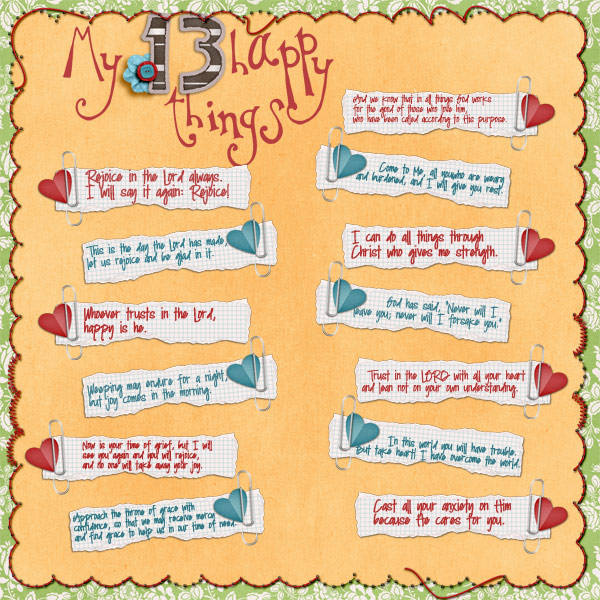 My 13 happy
things
Rejoice in the Lord always.
I will say it again: Rejoice!
This is the day the Lord has made,
let us rejoice and be glad in it.
Whoever trusts in the Lord,
happy is he.
Weeping may endure for a night,
but joy comes in the morning.
Now is your time of grief, but I will
see you again and you will rejoice,
and no one will take away your joy.
Approach the throne of grace with
confidence, so that we may receive mercy
and find grace to help us in our time of need.
And we know that in all things God works
for the good of those who love him,
who have been called according to His purpose.
Come to Me, all you who are weary
and burdened, and I will give you rest.
I can do all things through
Christ who gives me strength.
God has said, "Never will I
leave you; never will I forsake you."
Trust in the LORD with all your heart
and lean not on your own understanding.
In this world you will have trouble.
But take heart! I have overcome the world.
Cast all your anxiety on Him
because He cares for you.